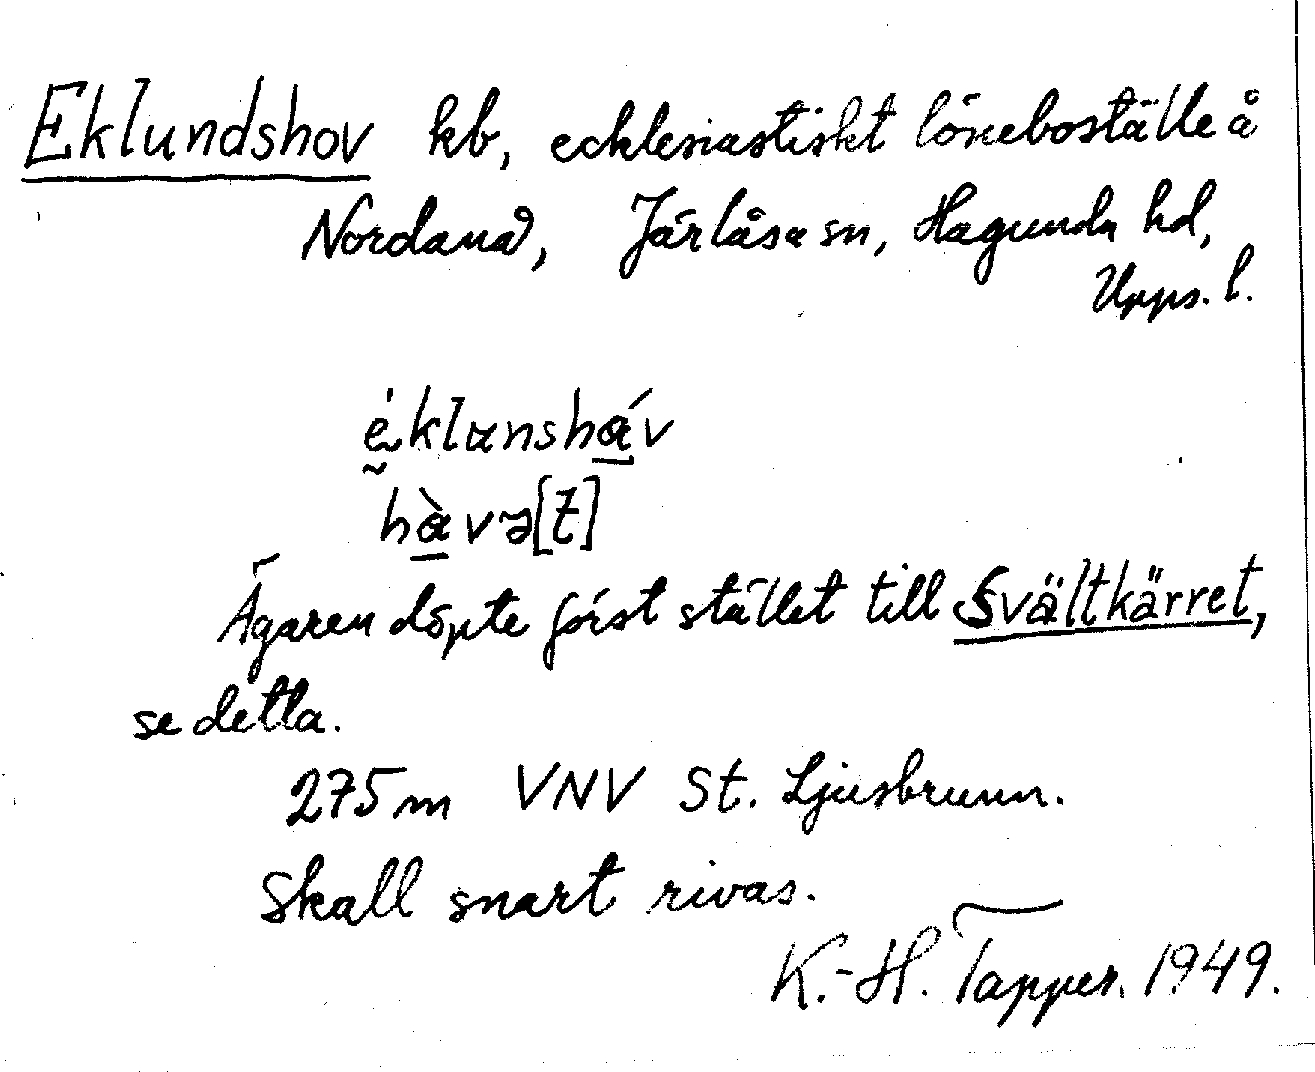 Eklundshov kb, ecklesiastiskt löneboställe å
Nordanå, Järlåsa sn, Hagunda hd,
Upps. l.
é̬klunshá̲v
hà̲və[t]
Ägaren döpte först stället till Svältkärret,
se detta.
275 m VNV St. Ljusbrunn.
Skall snart rivas.
K.-H. Tapper. 1949.